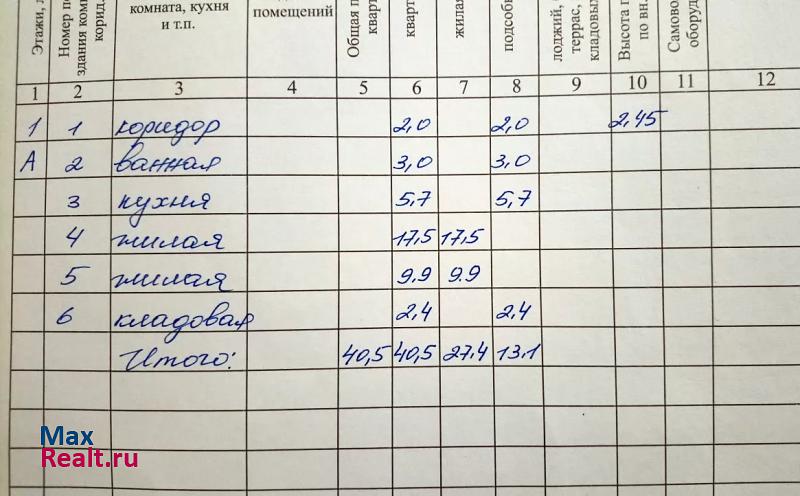 комната, кухня
и т.п.
помещений
Этажи,
Номер
здания
корид.
Общая
подсоб
лоджий,
террас,
кладовых
Высота
по вн.
Самово
оборуд
1 2 3 4 5 6 7 8 9 10 11 12
1 1 коридор 2,0 2,0 2,45
А 2 ванная 3,0 3,0
3 кухня 5,7 5,7
4 жилая 17,5 17,5
5 жилая 9.9 9.9
6 кладовая 2,4 2,4
Итого: 40,5 40,5 27,4 13,1
Max
Realt.ru